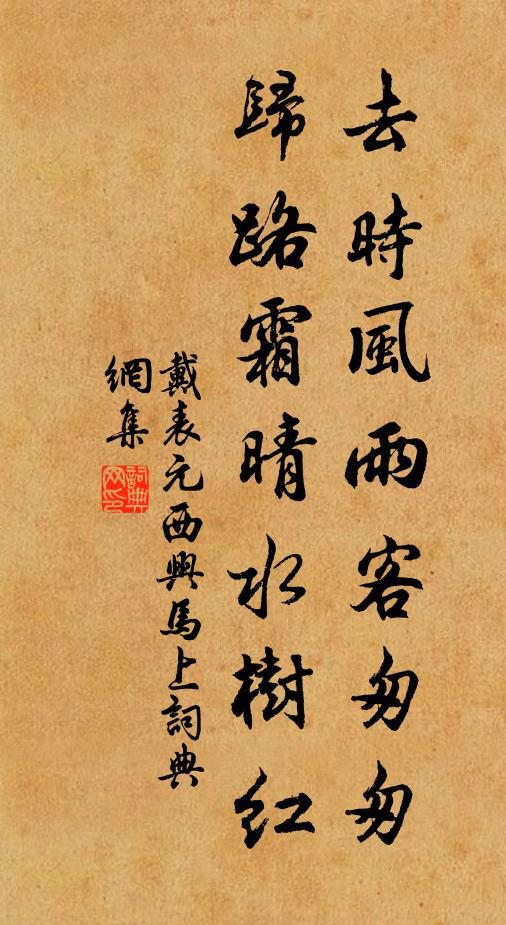 去時風雨客匆匆
歸路霜晴水樹紅
戴表元西興馬上詞典
網集
詞典
網印